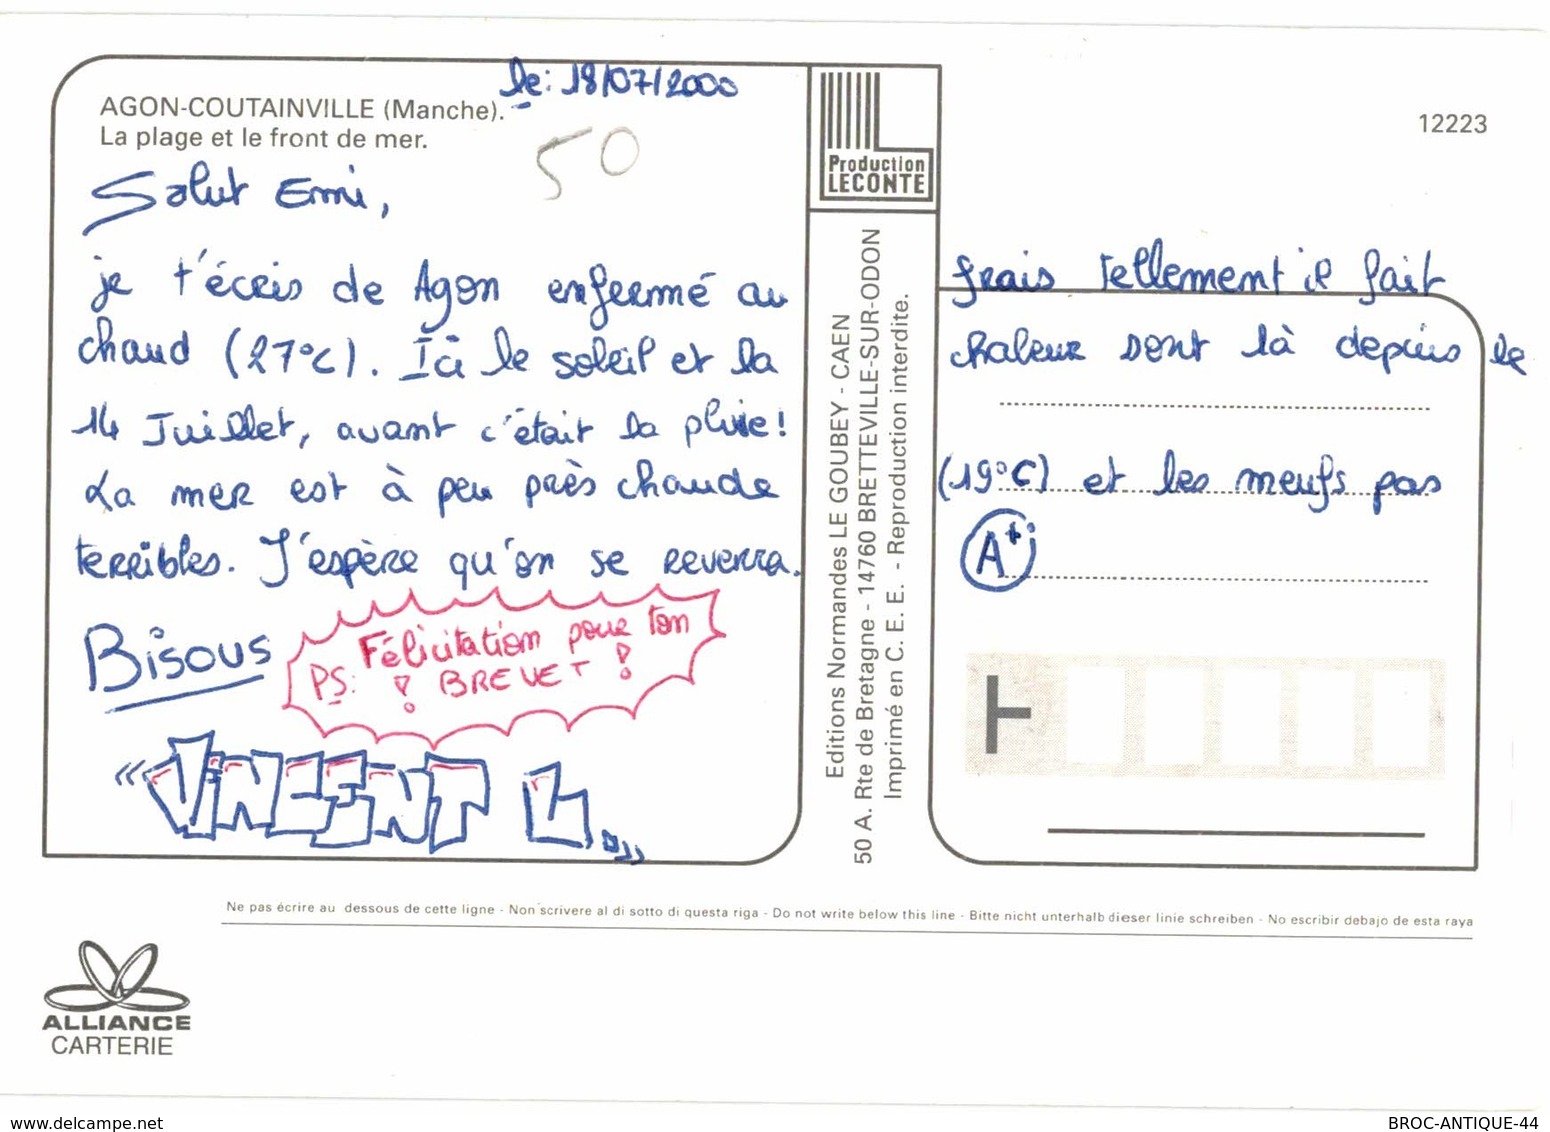 le: 18/07/2000
AGON-COUTAINVILLE (Manche).
La plage et le front de mer.
50
12223
Production
LECONTE
Salut Emi,
je t'écris de Agon enfermé au frais tellement il fait
chaud (27°C). Ici le soleil et la chaleur sont là depuis le
14 Juillet, avant c'était la pluie!
La mer est à peu près chaude (19°C) et les meufs pas
terribles. J'espère qu'on se reverra. A+
Bisous
PS: Félicitation pour ton
! BREVET !
"VINCENT L."
Editions Normandes LE GOUBEY - CAEN
50 A. Rte de Bretagne - 14760 BRETTEVILLE-SUR-ODON
Imprimé en C. E. E. - Reproduction interdite.
Ne pas écrire au dessous de cette ligne - Non scrivere al di sotto di questa riga - Do not write below this line - Bitte nicht unterhalb dieser linie schreiben - No escribir debajo de esta raya
ALLIANCE
CARTERIE
www.delcampe.net
BROC-ANTIQUE-44